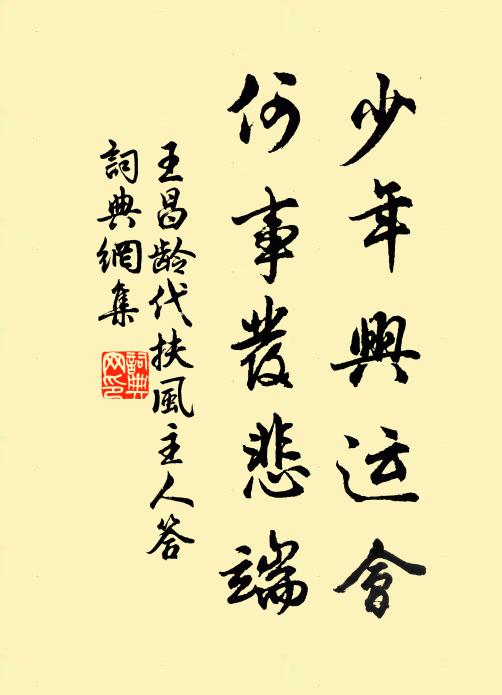 少年興运會
何事發悲端
王昌龄代扶風主人答
詞典網集
詞典
网印